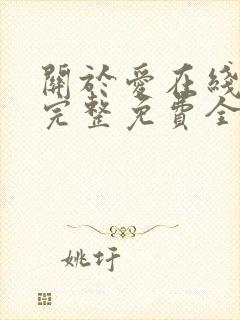 關於愛在綫
完整免費全
姚圩